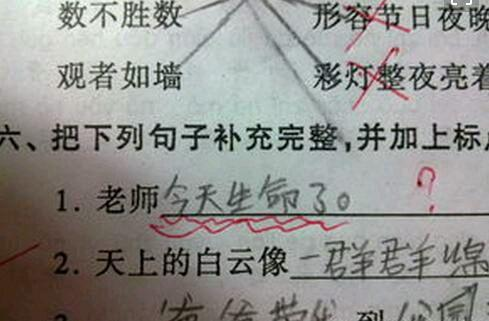 数不胜数 形容节日夜晚
观者如墙 彩灯整夜亮着
六、把下列句子补充完整,并加上标点
1. 老师今天生命了。 ?
2. 天上的白云像一群群绵
到公园